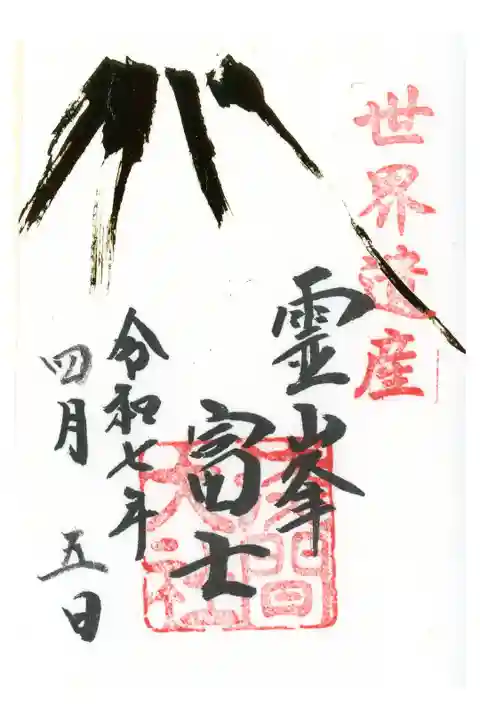 世界遺産
霊峯
富士
浅間
大社
令和七年
四月 五日